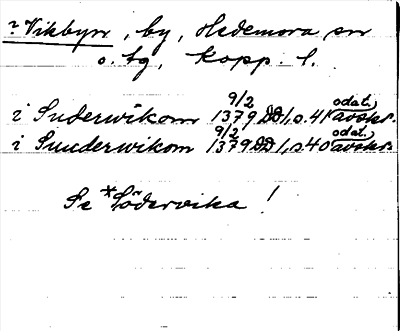 ? Vikbyn, by, Hedemora sn
o. tg, Kopp. l.
i Suderwikom 9/2 1379 DD 1, s. 41 odat. avskr.
i Sunderwikom 9/2 1379 DD 1, s. 40 odat. avskr.
Se *Södervika !